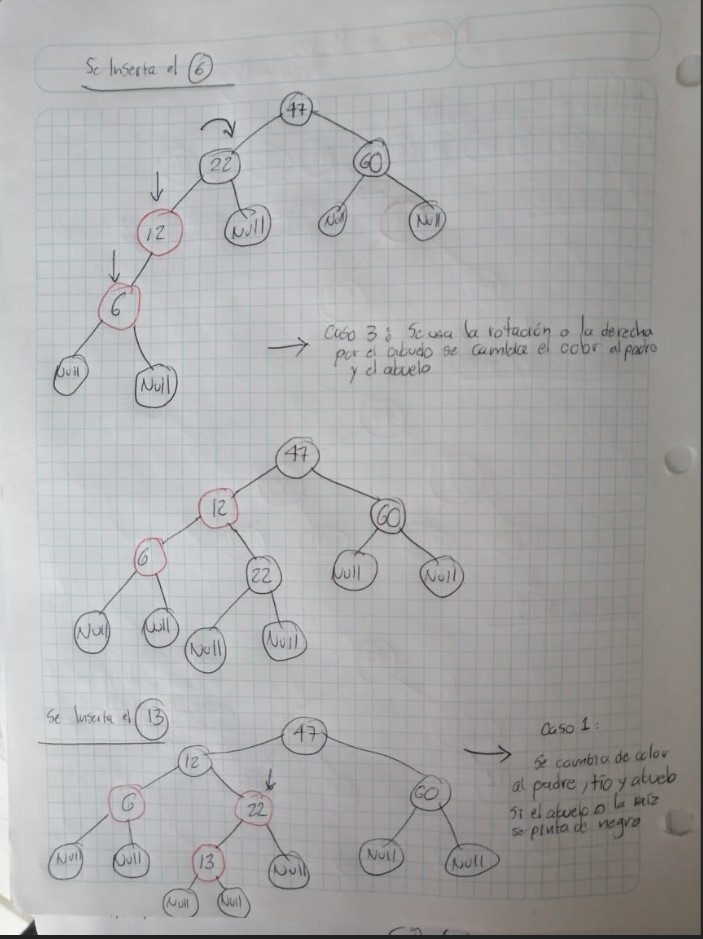 Se Inserta el 6
47
22
60
12
Null
Null
Null
6
Null
Null
Caso 3: Se usa la rotación a la derecha
por el abuelo se cambia el color al padre
y el abuelo
47
12
60
6
22
Null
Null
Null
Null
Null
Null
Se Inserta el 13
47
12
60
6
22
Null
Null
13
Null
Null
Null
Null
Null
Caso 1:
Se cambia de color
al padre, tío y abuelo
si el abuelo o la raíz
se pinta de negro